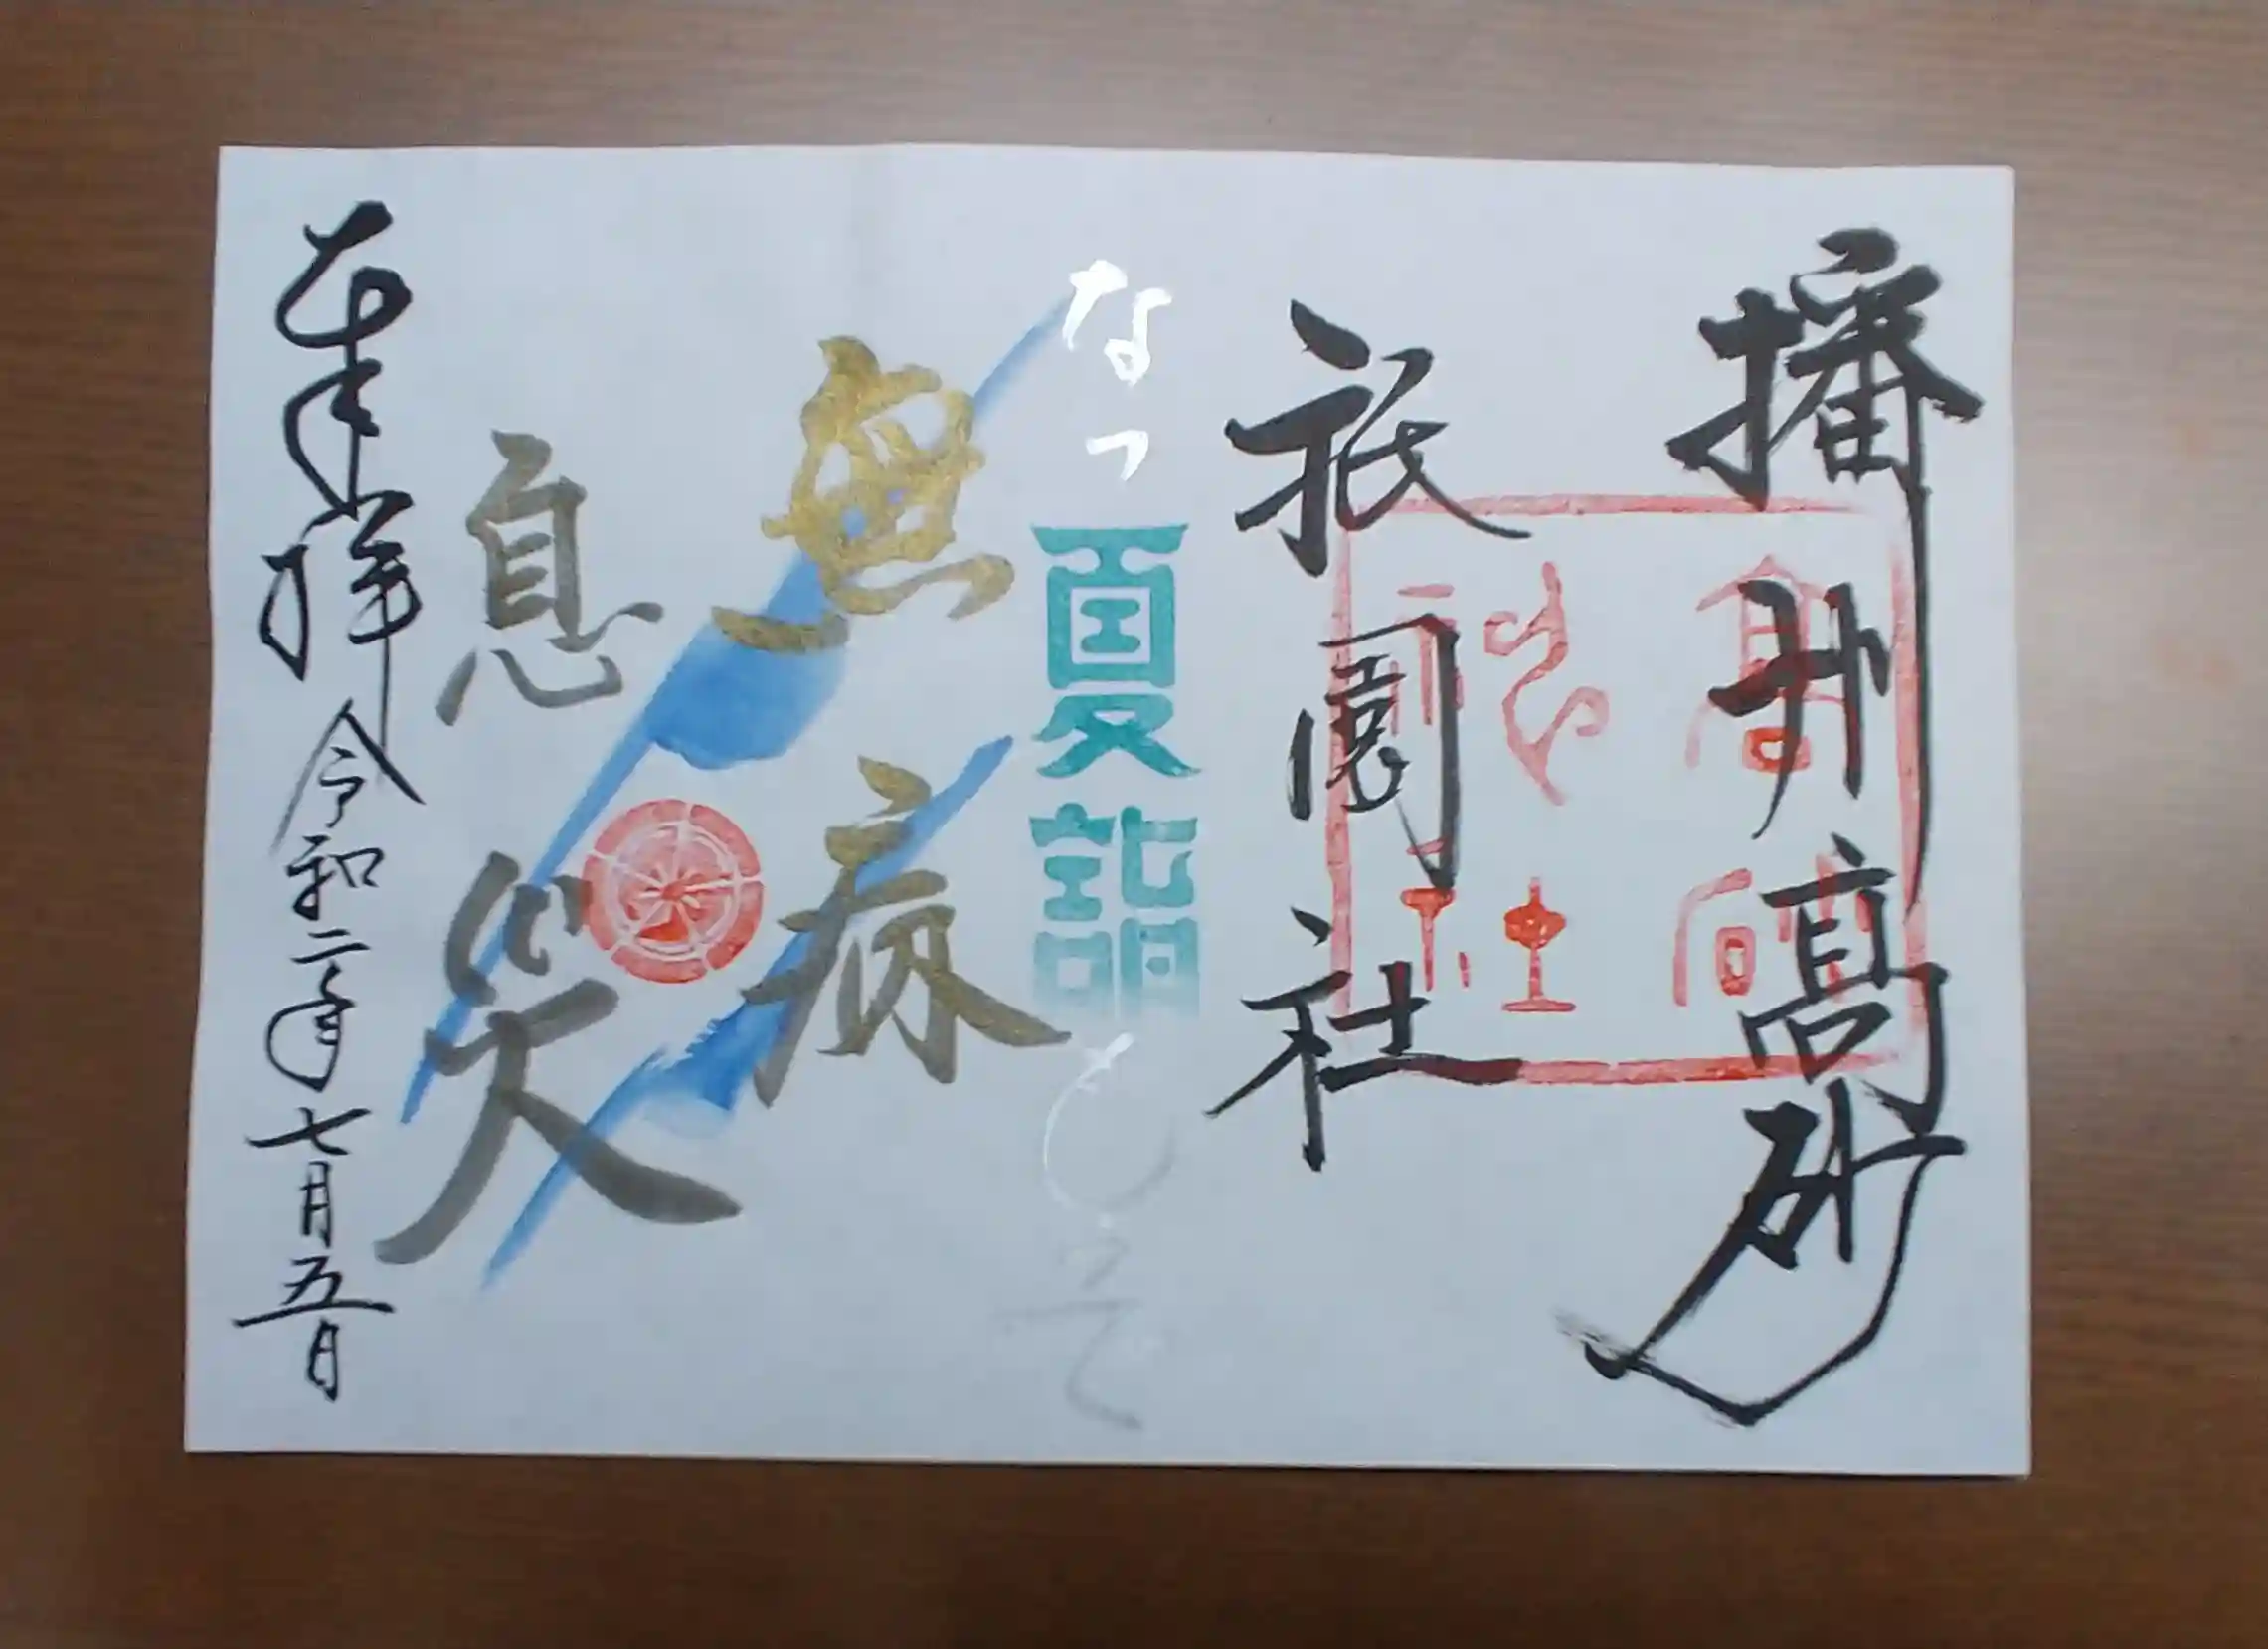 播州高砂
祇園社
高砂神社
なつ
夏詣
もうで
無病
息災
奉拝 令和二年七月五日